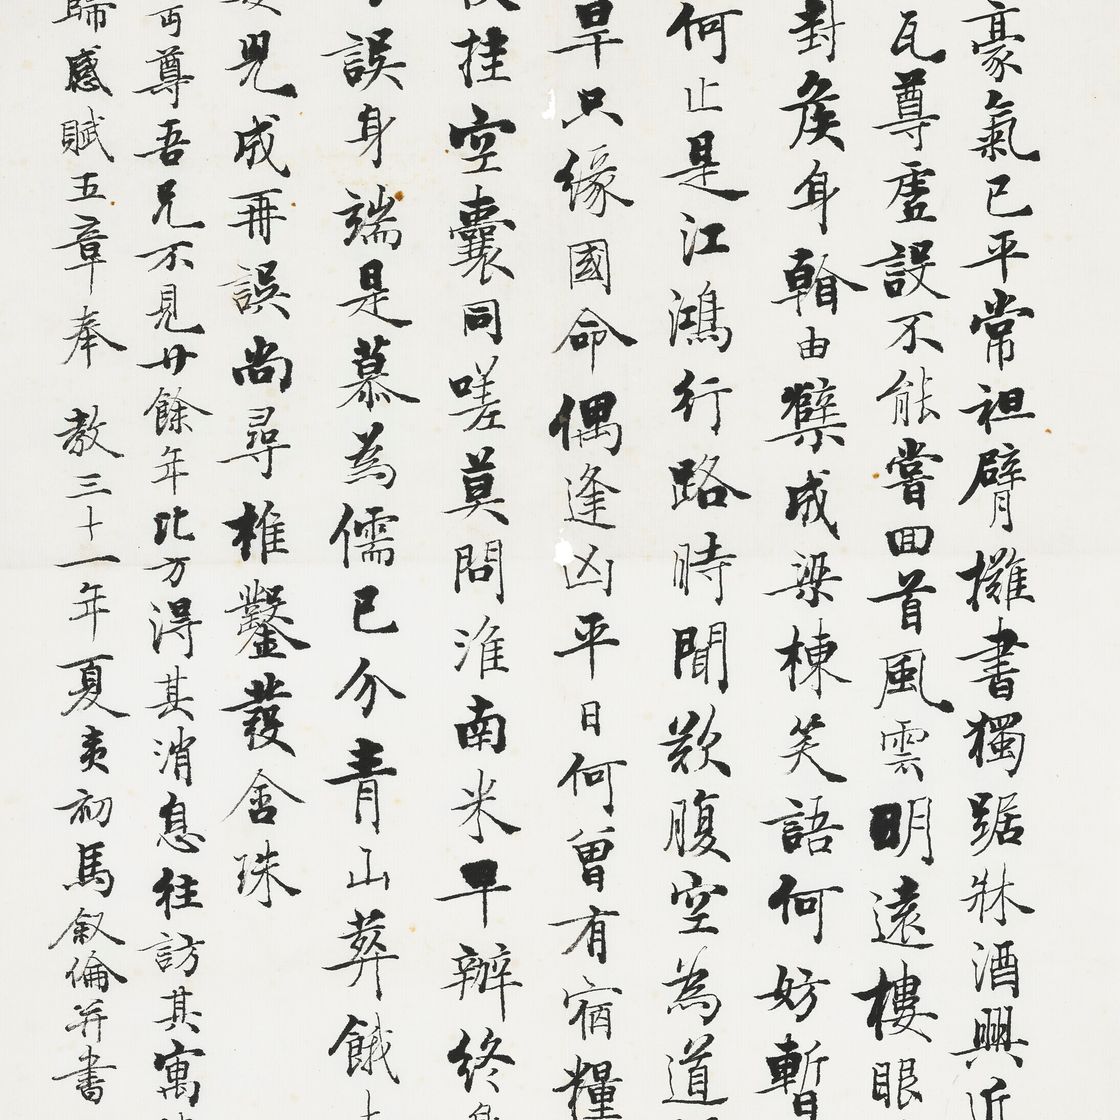 豪氣已平常袒臂擁書獨踞牀酒興近
瓦尊盧設不能嘗回首風雲明遠樓眼
封侯身翰由櫱成梁棟笑語何妨暫
何止是江鴻行路時聞歎腹空為道
旱只緣國命偶逢凶平日何曾有宿糧
挂空囊同嗟莫問淮南米早辦終
誤身端是慕為儒已分青山葬餓
兒成再誤尚尋椎鑿發含珠
尊吾兄不見廿餘年比方得其消息往訪其寓
歸感賦五章奉教三十一年夏夷初馬叙倫并書